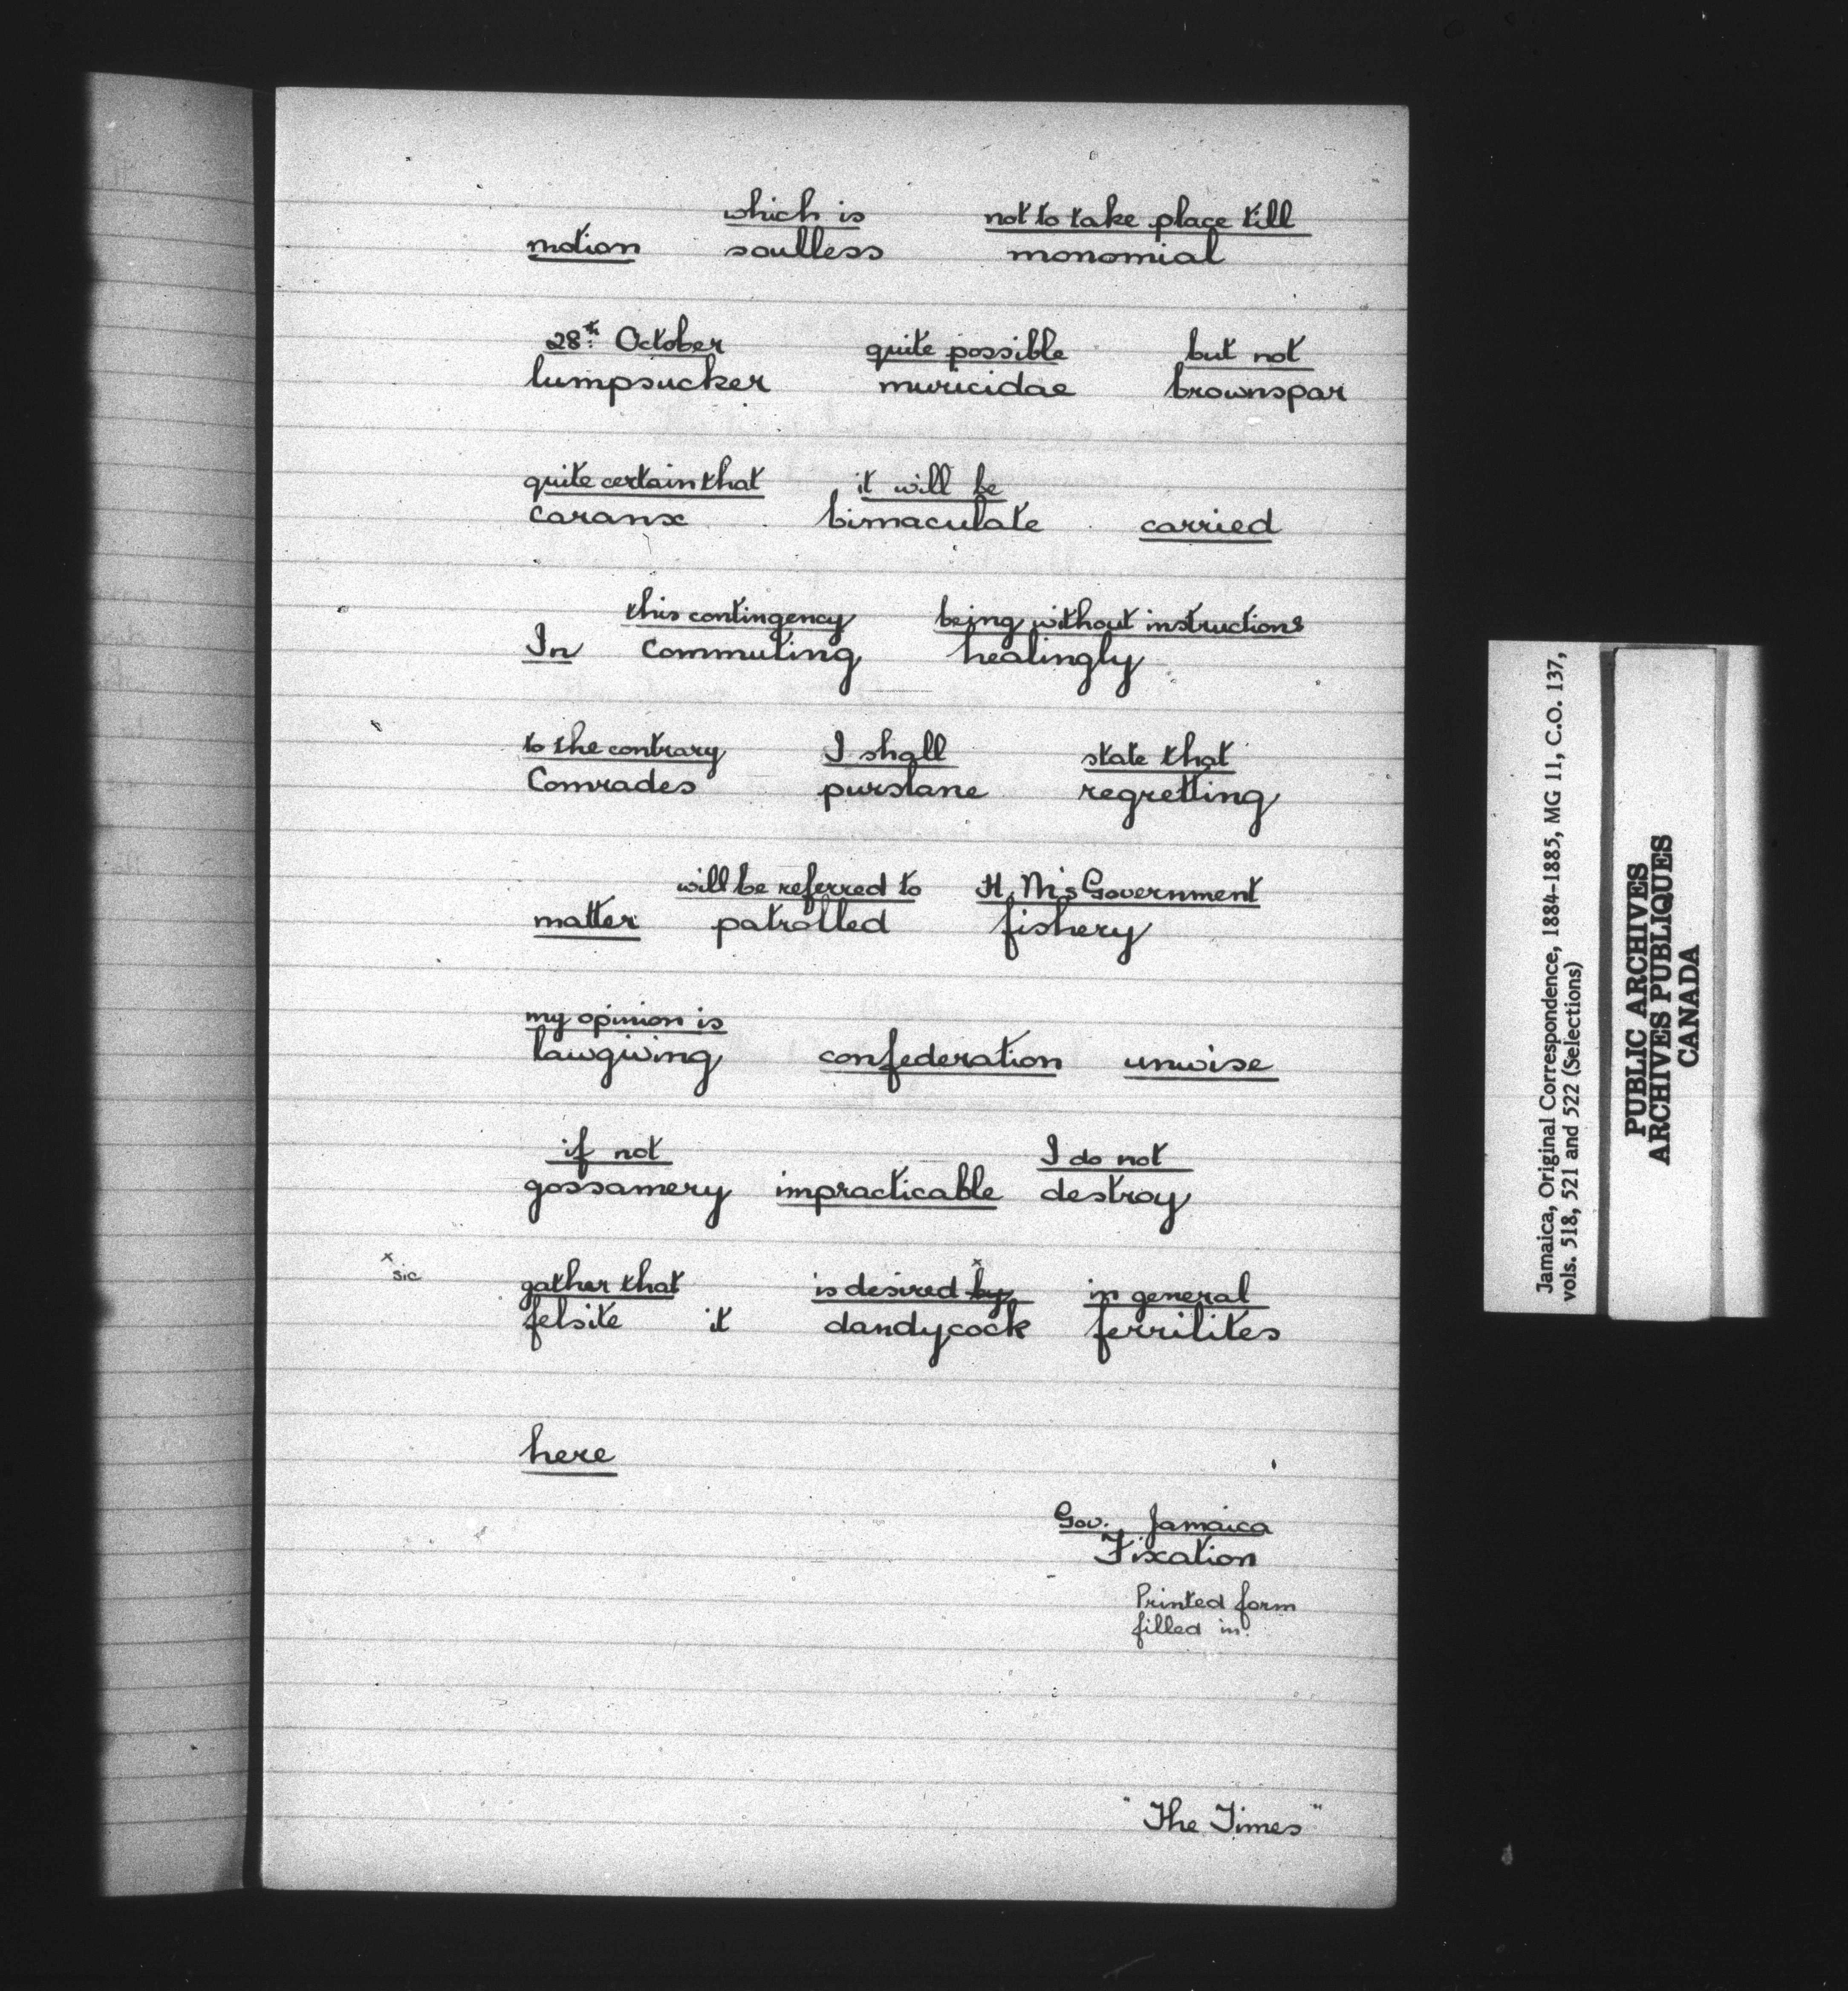 which is not to take place till
motion soulless monomial
28th October quite possible but not
lumpsucker muricidae brownspar
quite certain that it will be
caranx bimaculate carried
this contingency being without instructions
In Commuting healingly
to the contrary I shall state that
Comrades purslane regretting
will be referred to H.M's Government
matter patrolled fishery
my opinion is
lawgiving confederation unwise
if not I do not
gossamery impracticable destroy
x
sic
gather that is desired by x in general
felsite it dandycock ferrilites
here
Gov. Jamaica
Fixation
Printed form
filled in.
"The Times"
Jamaica, Original Correspondence, 1884-1885, MG 11, C.O. 137,
vols. 518, 521 and 522 (Selections)
PUBLIC ARCHIVES
ARCHIVES PUBLIQUES
CANADA